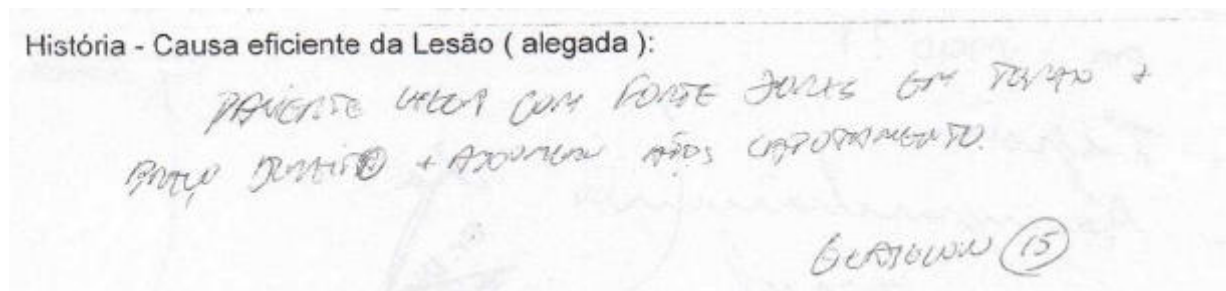 História - Causa eficiente da Lesão ( alegada ):
PACIENTE COM FORTE DORES EM TORAX +
BRAÇO DIREITO + ABDOMEN APÓS CAPOTAMENTO.
GLASGOW 15